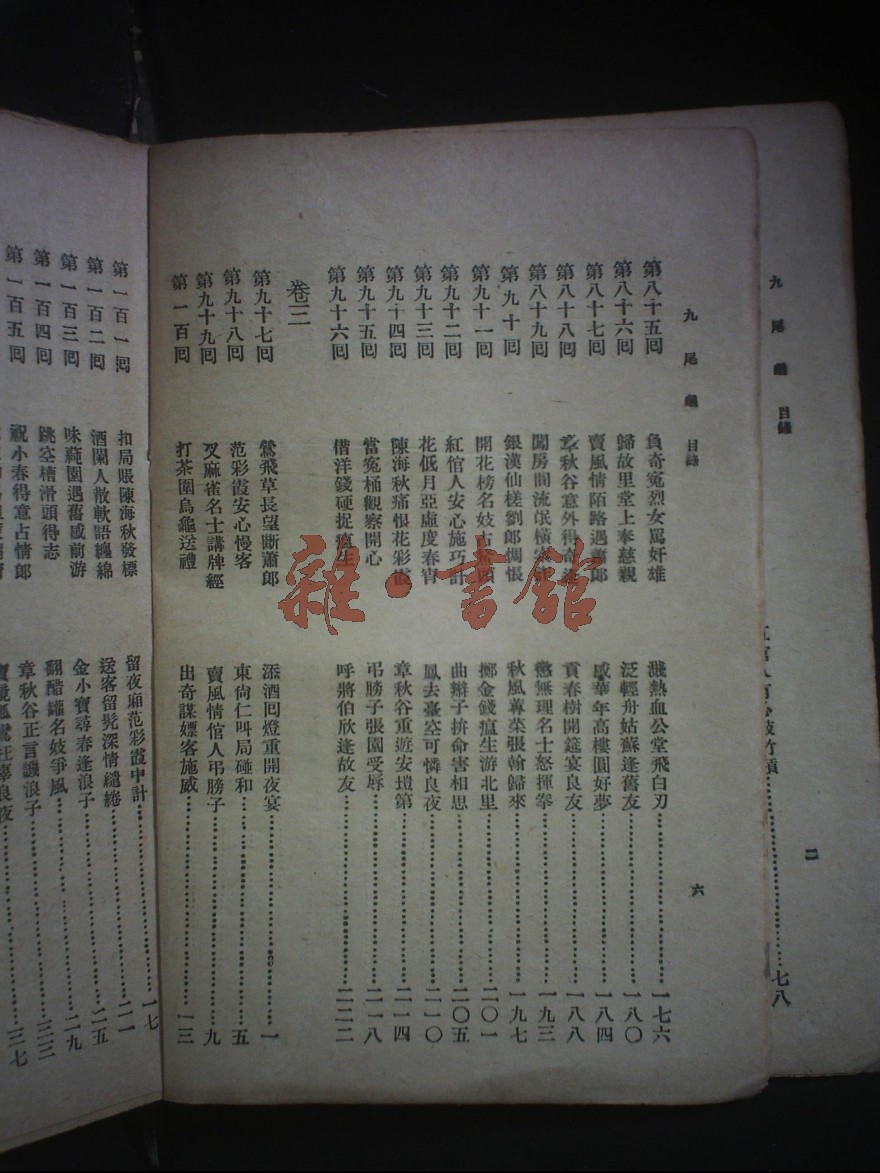 二
七八
九尾龜 目錄
六
第八十五回 負奇寃烈女罵奸雄 濺熱血公堂飛白刃 一七六
第八十六回 歸故里堂上奉慈親 泛輕舟姑蘇逢舊友 一八〇
第八十七回 賣風情陌路遇蕭郎 感華年高樓圓好夢 一八四
第八十八回 章秋谷意外得奇逢 貢春樹開筵宴良友 一八八
第八十九回 闖房間流氓橫 懲無理名士怒揮拳 一九三
第九十回 銀漢仙槎劉郎惆悵 秋風蓴菜張翰歸來 一九七
第九十一回 開花榜名妓占鰲頭 擲金錢瘟生游北里 二〇一
第九十二回 紅倌人安心施巧計 曲辮子拚命害相思 二〇五
第九十三回 花低月亞虛度春宵 鳳去臺空可憐良夜 二一〇
第九十四回 陳海秋痛恨花彩霞 章秋谷重遊安塏第 二一四
第九十五回 當寃桶觀察開心 弔膀子張園受辱 二一八
第九十六回 借洋錢硬捉瘟生 呼將伯欣逢故友 二二二
卷三
第九十七回 鶯飛草長望斷蕭郎 添酒回燈重開夜宴 一
第九十八回 范彩霞安心慢客 東尙仁叫局碰和 五
第九十九回 叉麻雀名士講牌經 賣風情倌人弔膀子 九
第一百回 打茶圍烏龜送禮 出奇謀嫖客施威 一三
第一百一回 扣局賬陳海秋發標 留夜廂范彩霞中計 一七
第一百二回 酒闌人散軟語纏綿 送客留髠深情繾綣 二一
第一百三回 味蒓園遇舊感前游 金小寶尋春逢浪子 二五
第一百四回 跳空槽滑頭得志 翻醋罐名妓爭風 二九
第一百五回 祝小春得意占情郎 章秋谷正言譏浪子 三三
良夜 三七
雜·書館